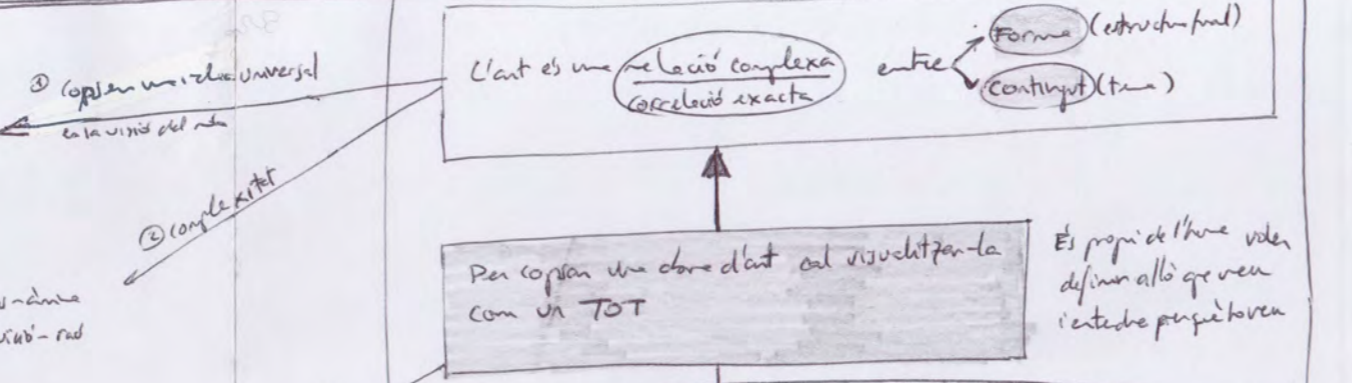 ① Copsen una idea universal
en la visió del món
② complexitat
L'art és una relació complexa
correlació exacta
entre
Forma (estructura final)
Contingut (tema)
Per copsar una obra d'art cal visualitzar-la
com un TOT
És propi de l'home voler
definir allò que veu
i entendre perquè ho veu